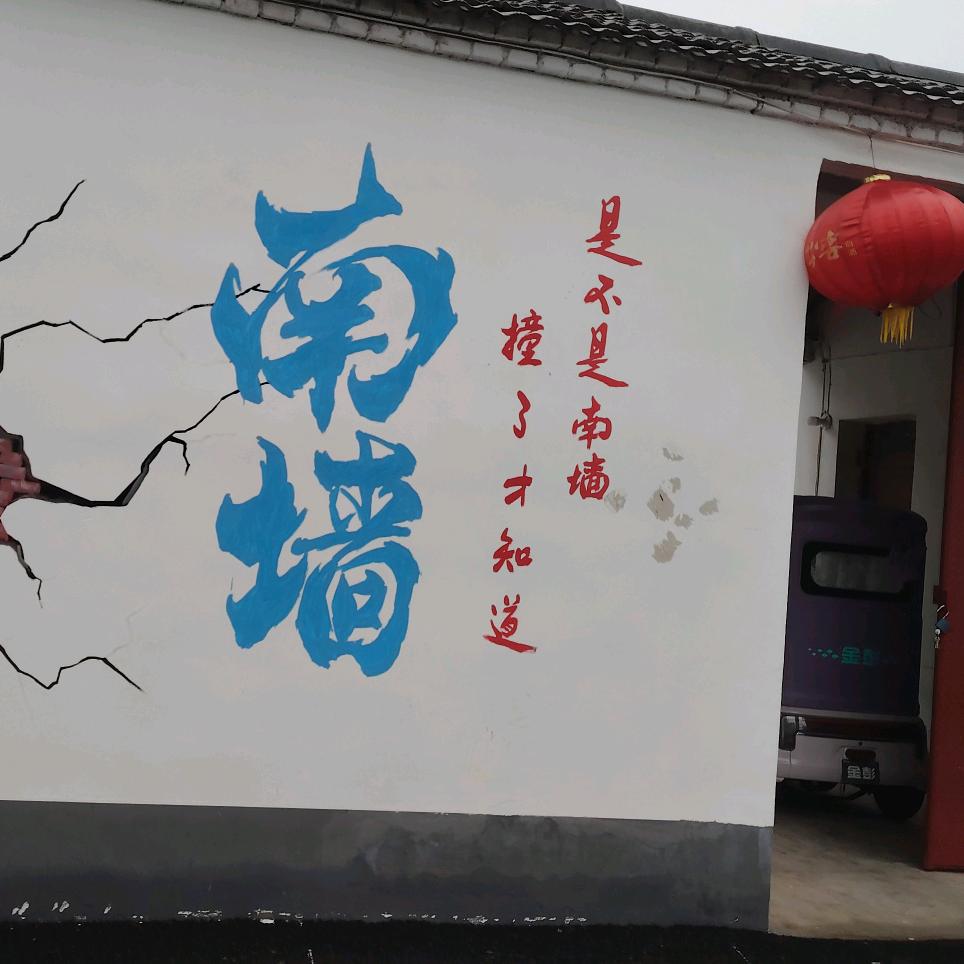 南墙
是不是南墙
撞了才知道
金彭
金彭